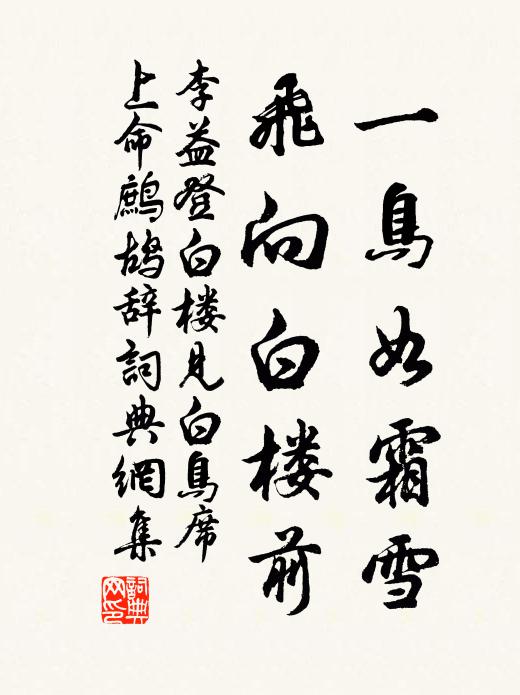 一鳥如霜雪
飛向白楼前
李益登白楼見白鳥席
上命鷓鴣辞詞典網集
詞典
网印